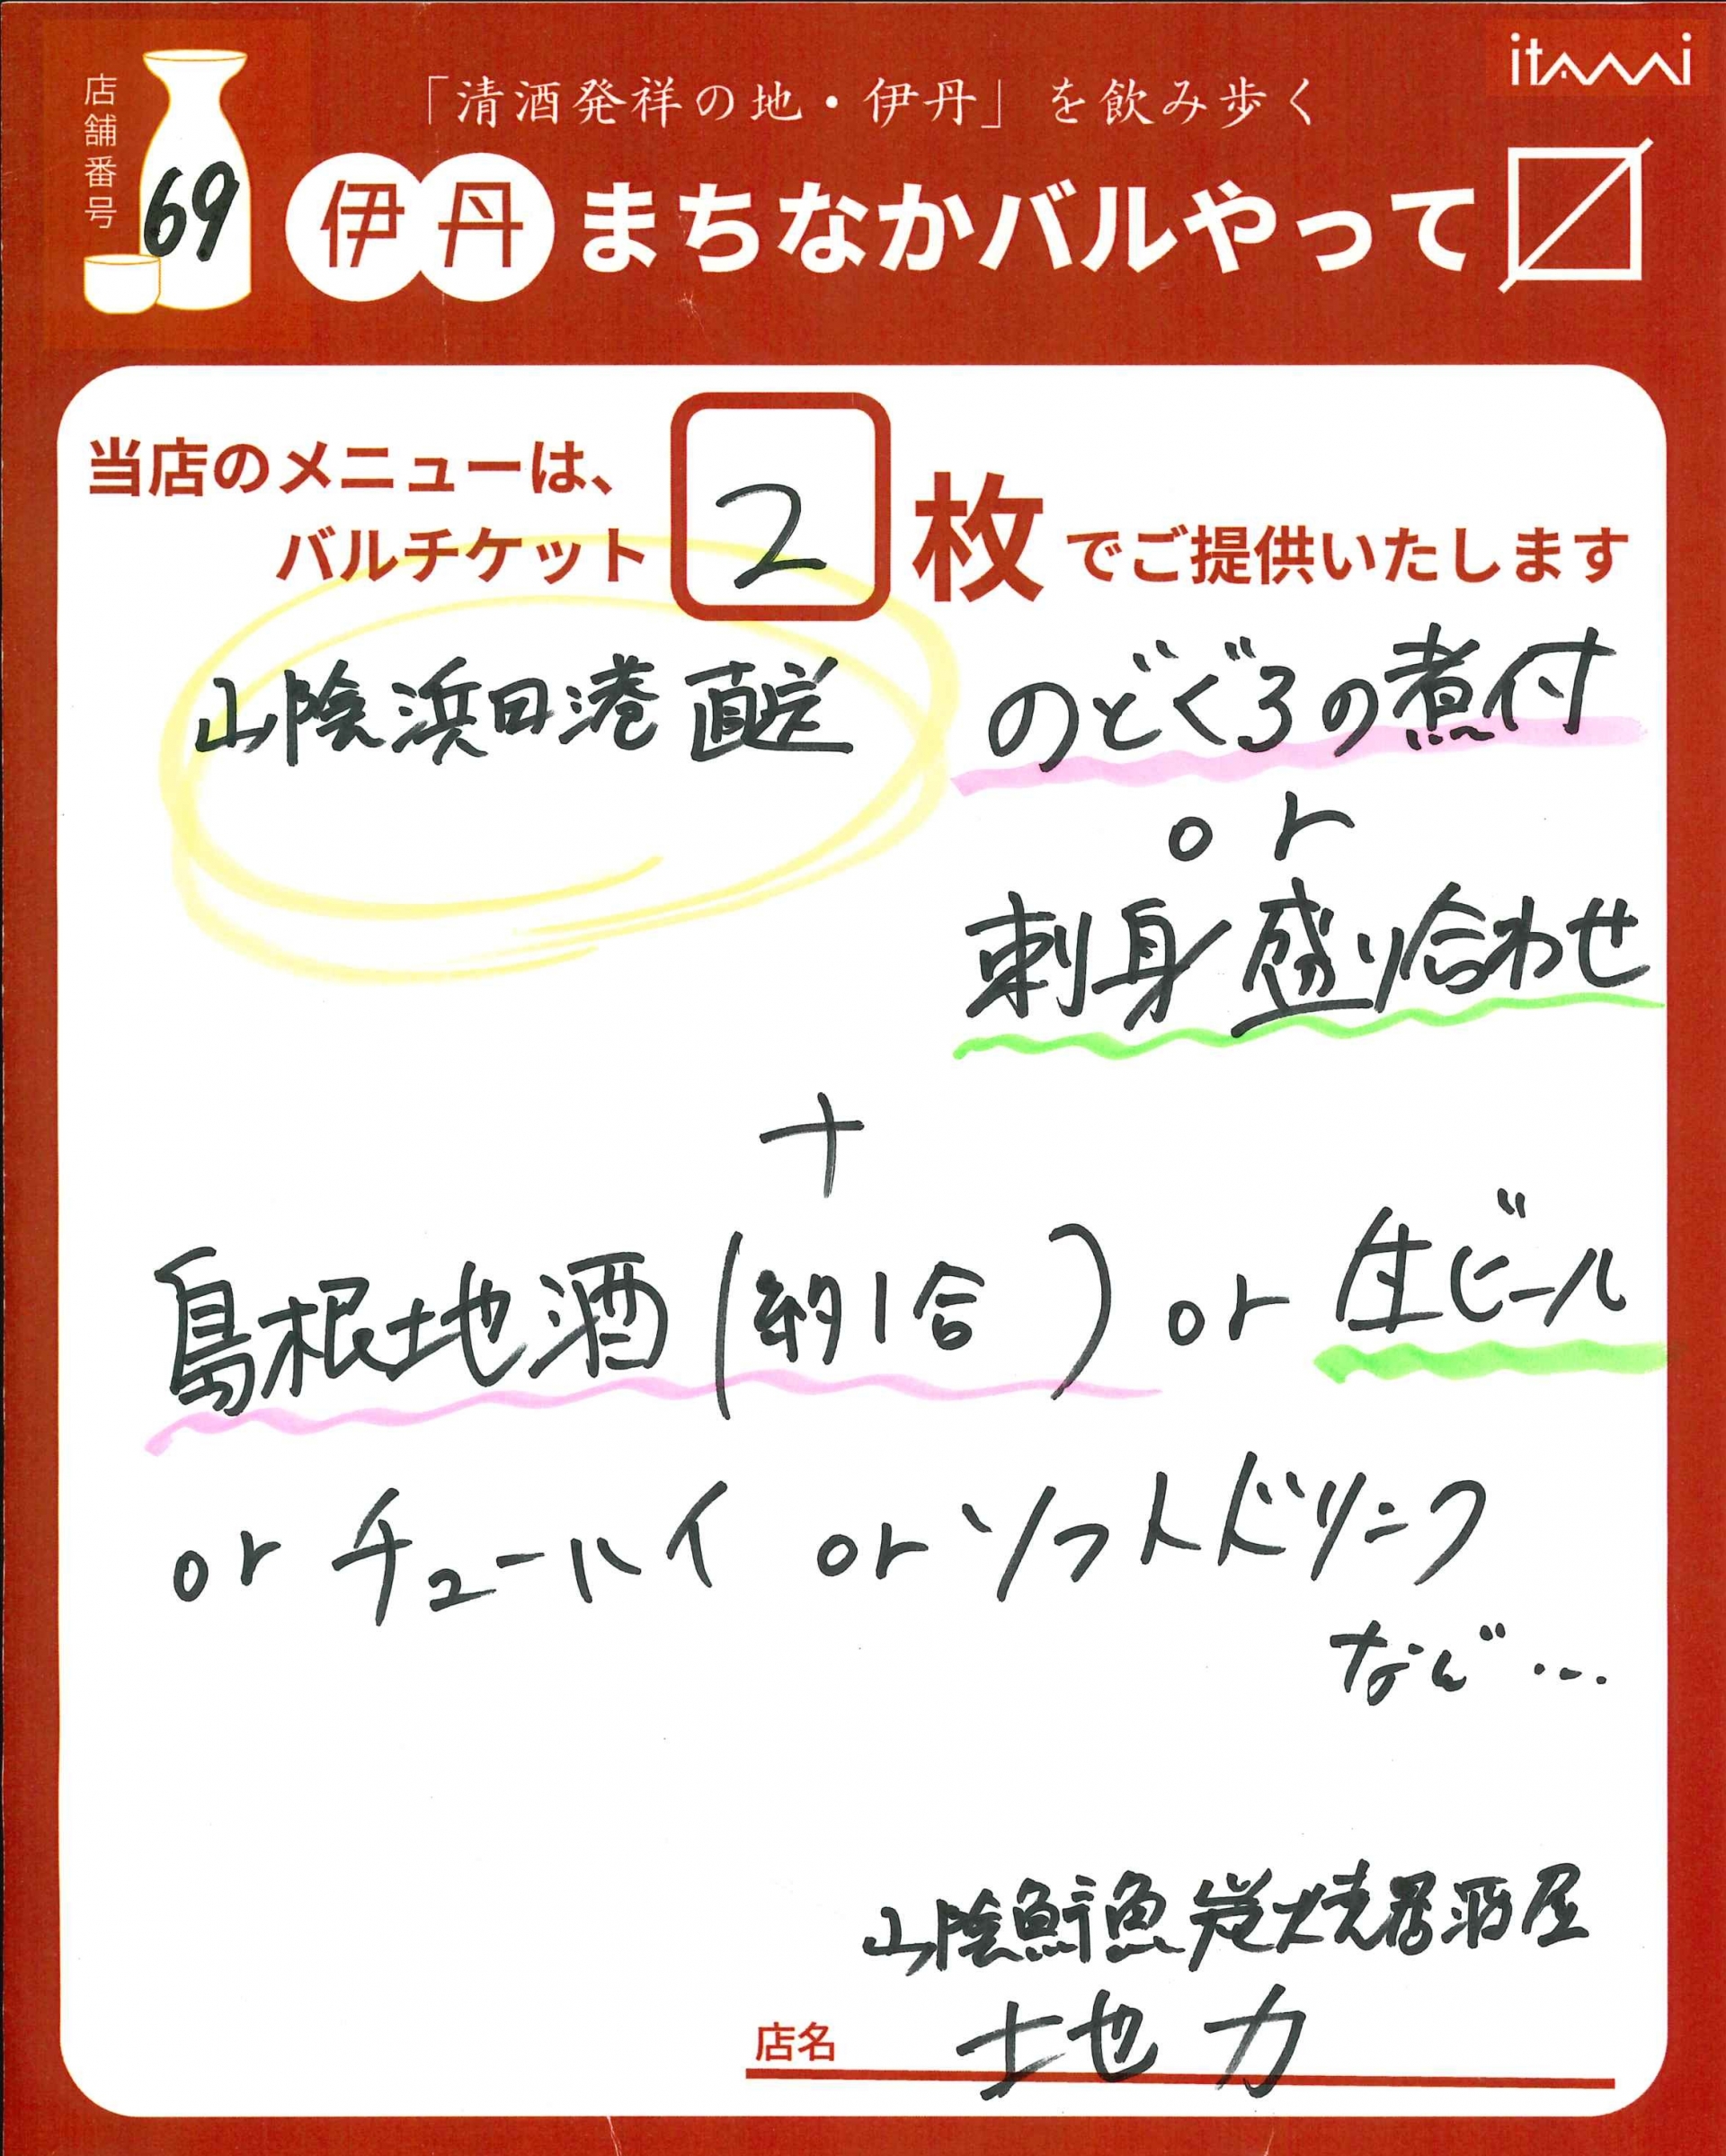 itami
店舗番号
69
「清酒発祥の地・伊丹」を飲み歩く
伊丹まちなかバルやって〼
当店のメニューは、
バルチケット 2 枚でご提供いたします
山陰浜田港直送 のどぐろの煮付
or
刺身盛り合わせ
+
島根地酒(約1合) or 生ビール
or チューハイ or ソフトドリンク
など…
山陰鮮魚炭焼居酒屋
店名 地力